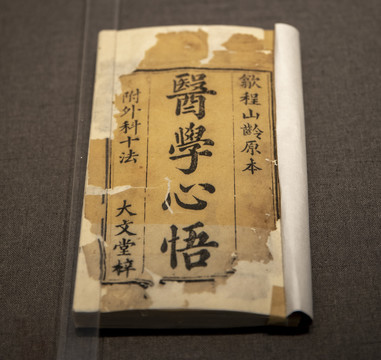 歙程山齡原本
醫學心悟
附外科十法
大文堂梓